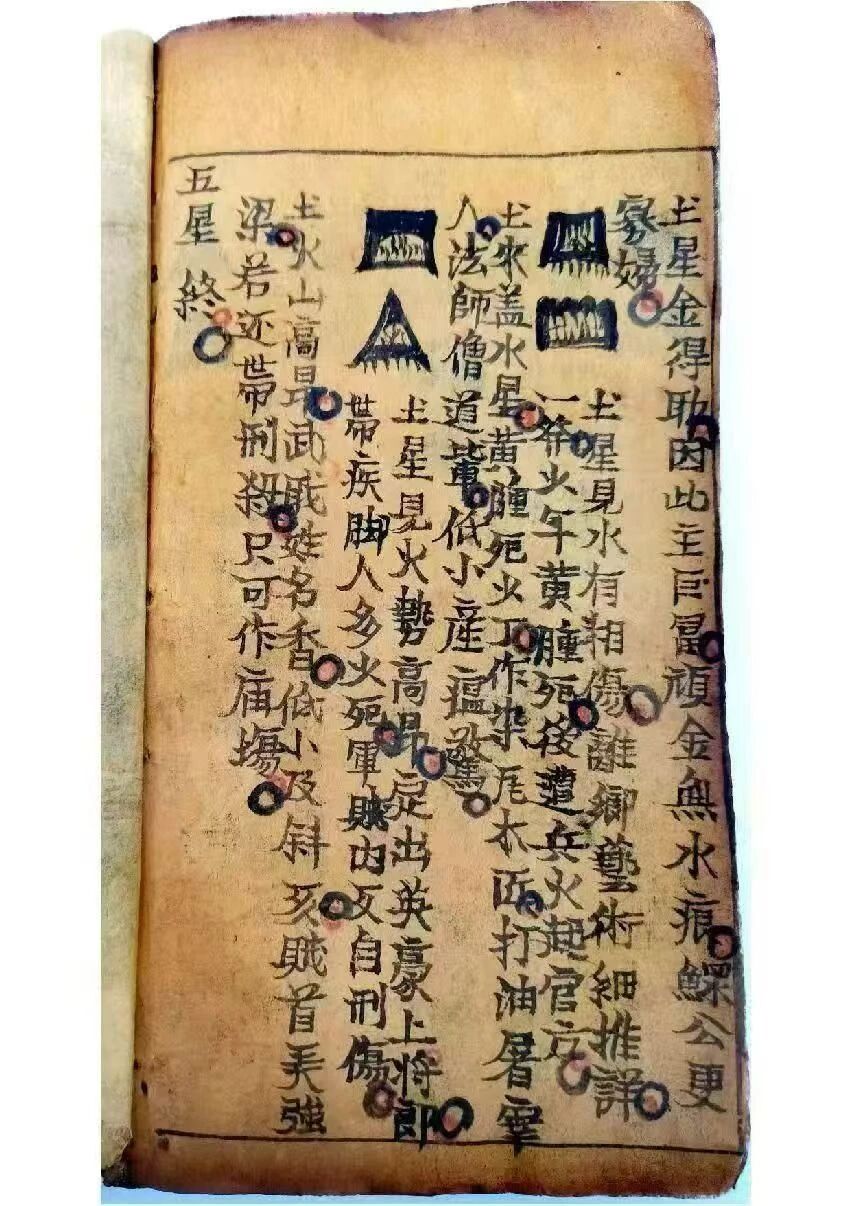 土星金得助因此主巨富頑金無水痕鰥公更
寡婦
土星見水有相傷離鄉藝術細推詳
一奔少年黃腫死後遭兵火起官方
土來盖水星黃腫死少丁作染厐木匠打油屠宰
人法師僧道輩低小産瘟驚
土星見火勢高昂定出英豪上將郎
帶疾脚人多火死軍賊内反自刑傷
土火山高昂武职姓名香低小及斜亥賊首美強
梁若还帶刑殺只可作庙塲
五星終